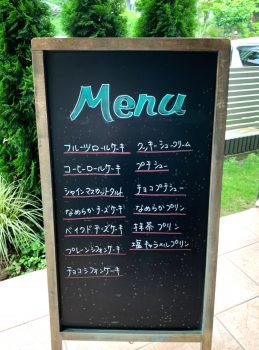 Menu
フルーツロールケーキ
コーヒーロールケーキ
シャインマスカットタルト
なめらかチーズケーキ
ベイクドチーズケーキ
プレーンシフォンケーキ
チョコシフォンケーキ
クッキーシュークリーム
プチシュー
チョコプチシュー
なめらかプリン
抹茶プリン
塩キャラメルプリン